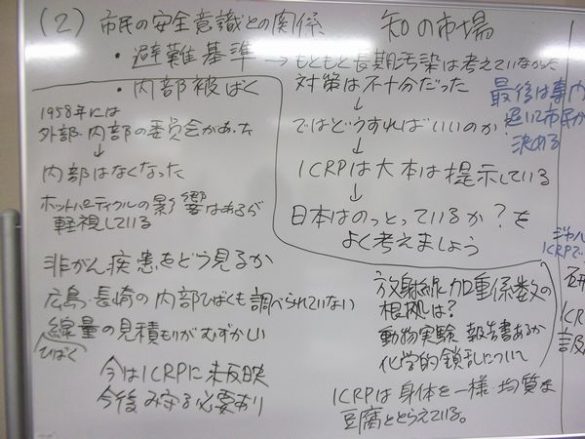 (2) 市民の安全意識との関係
知の市場
・避難基準→もともと長期汚染は考えていなかった
対策は不十分だった
↓
ではどうすればいいのか
↓
ICRPは大本は提示している
↓
日本はのっとっているか?を
よく考えましょう
・内部被ばく
1958年には
外部・内部の委員会があった
↓
内部はなくなった
ホットパーティクルの影響はあるが
軽視している
非がん疾患をどう見るか
広島・長崎の内部ひばくも調べられていない
線量の見積もりがむずかしい
ひばく
今はICRPに未反映
今後み守る必要あり
放射線加重係数の
根拠は?
動物実験 報告書あるか
化学的鎖乱について
ICRPは身体を一様・均質な
豆腐ととらえている。
最後は専門
市民が
決める
ICRPで
研